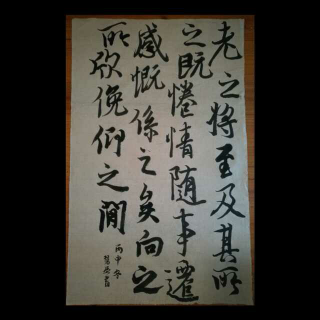 老之将至及其所
之既惓情随事遷
感慨係之矣向之
所欣俛仰之間
丙申冬